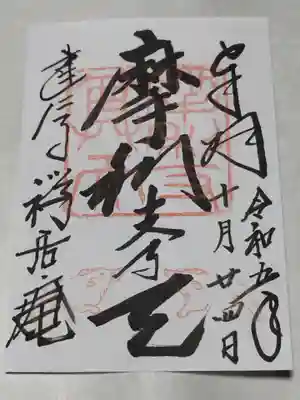 奉拝
令和五年
十月廿四日
摩利支尊天
建仁寺
禅居庵